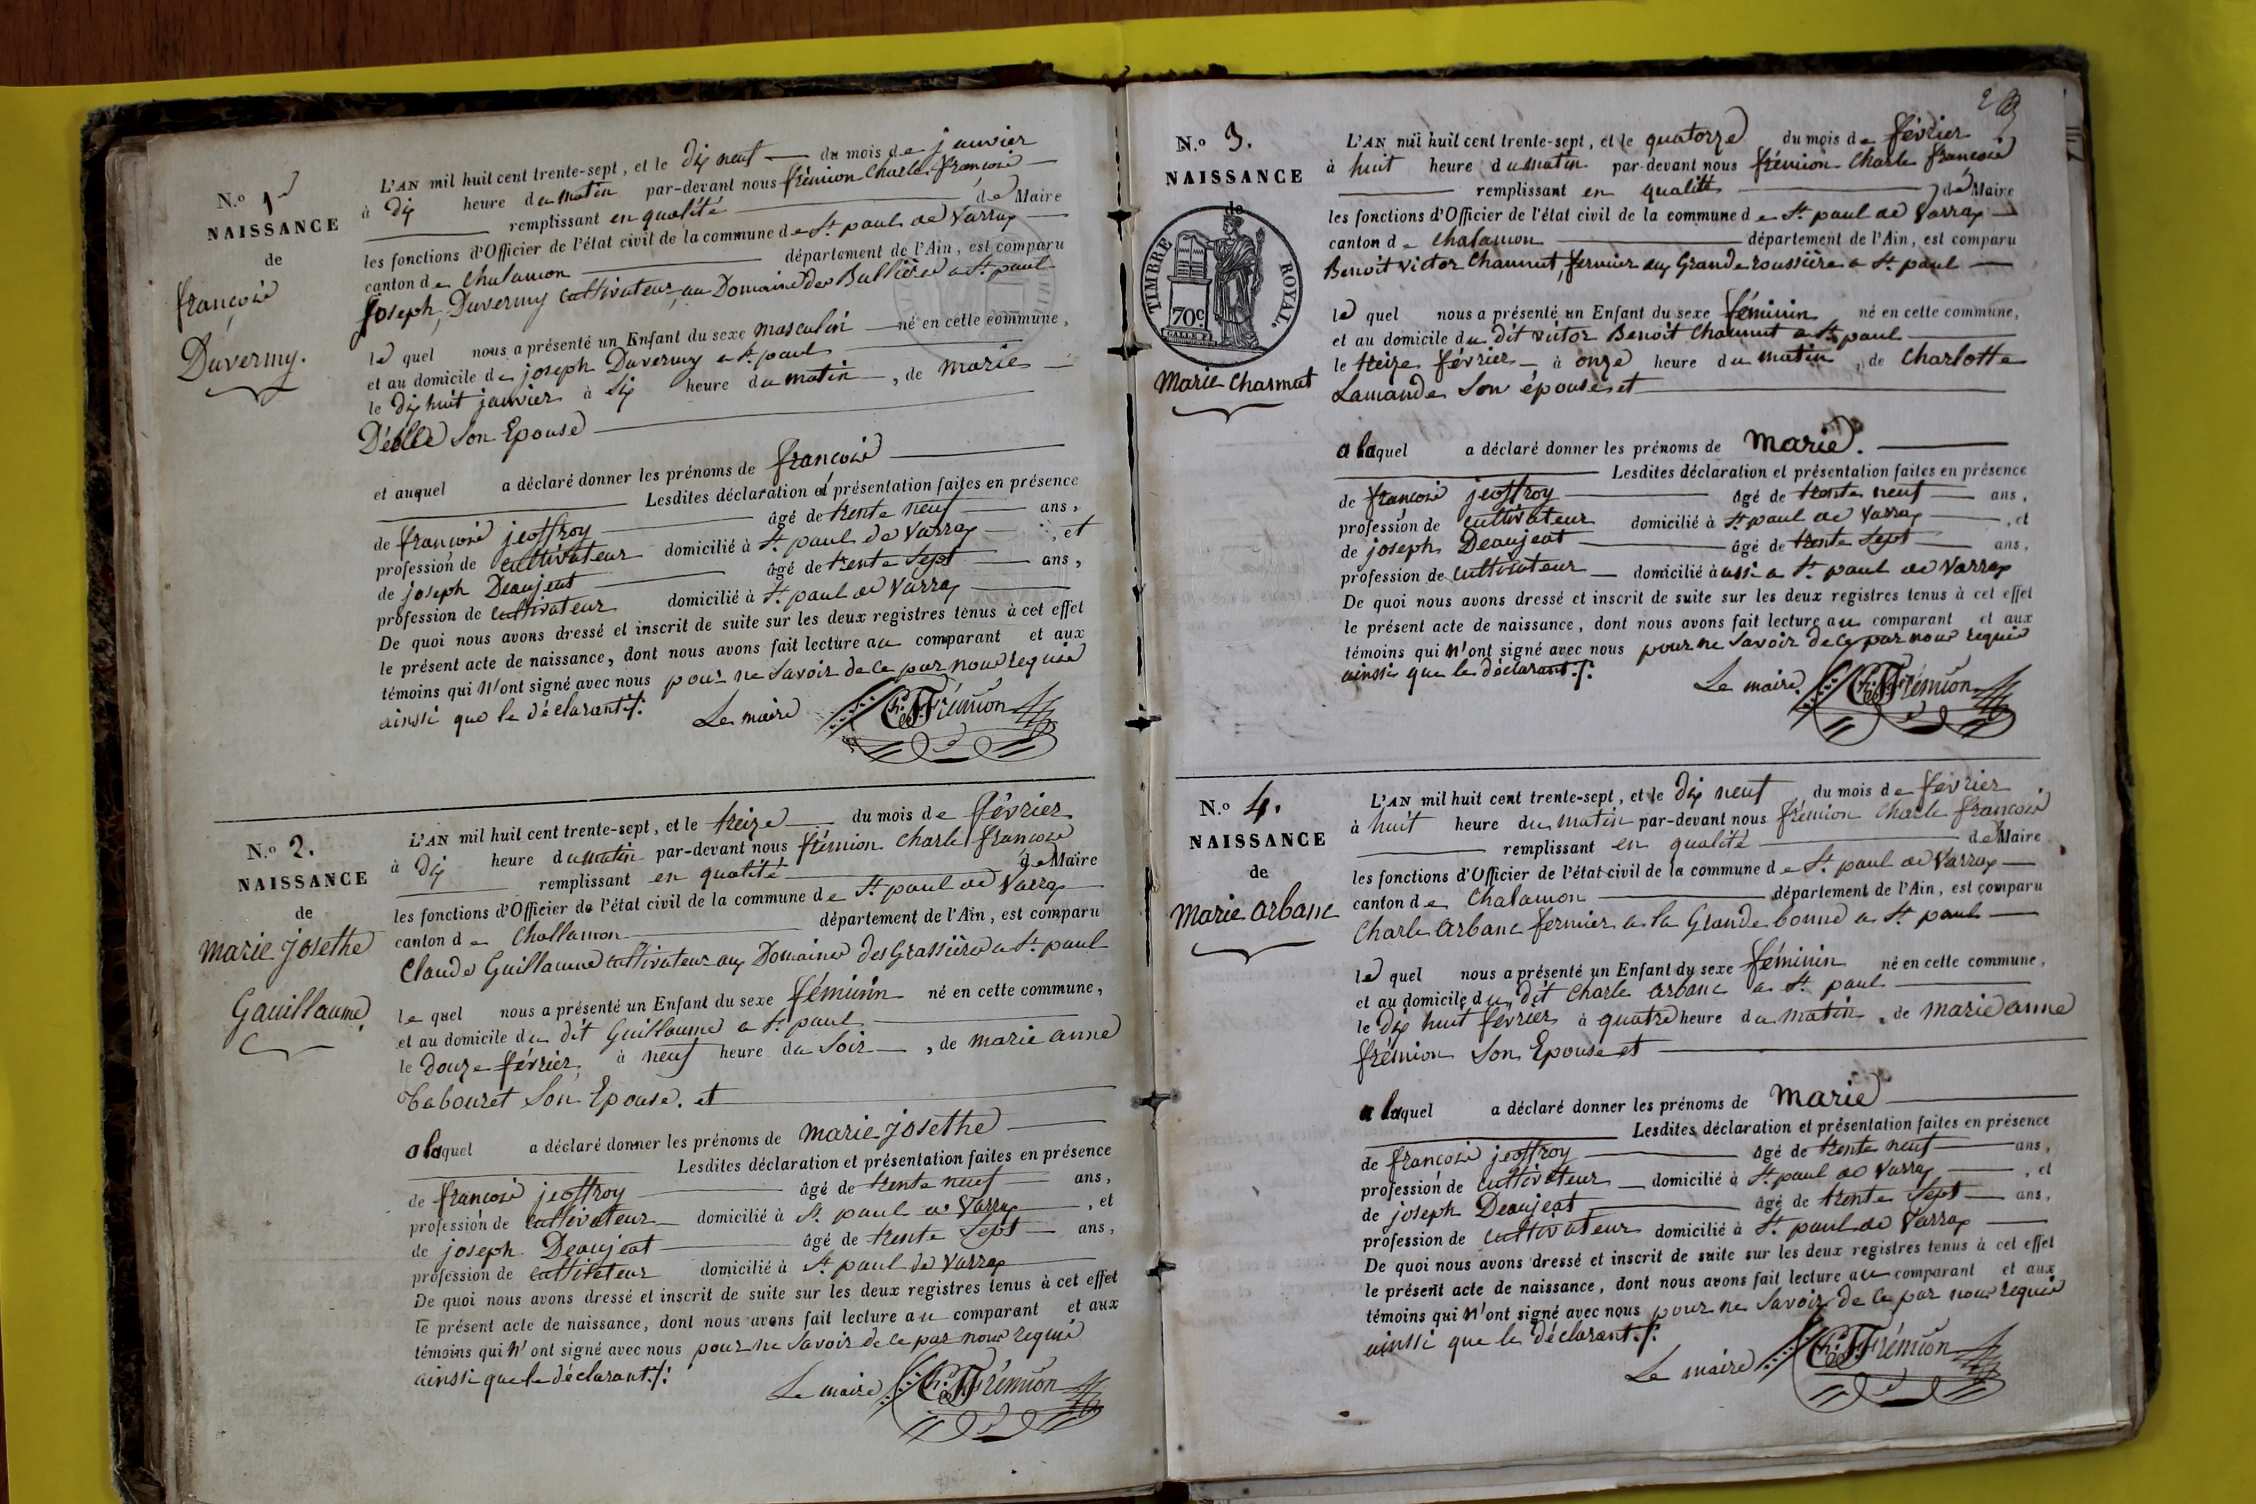 N.º 1
NAISSANCE
de
françois
Duvermy.
L'AN mil huit cent trente-sept, et le dix neuf du mois de janvier
à dix heure du matin par-devant nous frémion Charle françois
remplissant en qualité de Maire
les fonctions d'Officier de l'état civil de la commune de St paul de Varrax
canton de Chalamon département de l'Ain, est comparu
joseph Duvermy cultivateur au Domaine des Bullière a St paul
le quel nous a présenté un Enfant du sexe masculin né en cette commune,
et au domicile de joseph Duvermy a St paul
le dix huit janvier à six heure du matin, de marie
son Epouse
et auquel a déclaré donner les prénoms de françois
Lesdites déclaration et présentation faites en présence
de françois jeoffroy âgé de trente neuf ans,
profession de cultivateur domicilié à St paul de Varrax, et
de joseph Deaujeat âgé de trente sept ans,
profession de cultivateur domicilié à St paul de Varrax
De quoi nous avons dressé et inscrit de suite sur les deux registres tenus à cet effet
le présent acte de naissance, dont nous avons fait lecture au comparant et aux
témoins qui n'ont signé avec nous pour ne savoir de ce par nous requis
ainssi que le déclarant./.
Le maire Ch. F. Frémion
N.º 2.
NAISSANCE
de
marie josethe
Gauillaume
L'AN mil huit cent trente-sept, et le treize du mois de février
à dix heure du matin par-devant nous frémion Charle françois
remplissant en qualité de Maire
les fonctions d'Officier de l'état civil de la commune de St paul de Varrax
canton de Challamon département de l'Ain, est comparu
Claude Guillaume cultivateur aux Domaine des Grassière a St paul
le quel nous a présenté un Enfant du sexe féminin né en cette commune,
et au domicile du dit Guillaume a St paul
le douze février à neuf heure du soir, de marie anne
Tabouret son Epouse. et
a laquel a déclaré donner les prénoms de marie josethe
Lesdites déclaration et présentation faites en présence
de françois jeoffroy âgé de trente neuf ans,
profession de cultivateur domicilié à St paul de Varrax, et
de joseph Deaujeat âgé de trente sept ans,
profession de cultivateur domicilié à St paul de Varrax
De quoi nous avons dressé et inscrit de suite sur les deux registres tenus à cet effet
le présent acte de naissance, dont nous avons fait lecture au comparant et aux
témoins qui n'ont signé avec nous pour ne savoir de ce par nous requis
ainssi que le déclarant./.
Le maire Ch. F. Frémion
2
N.º 3.
NAISSANCE
de
TIMBRE ROYAL.
70c
marie Charmut
L'AN mil huit cent trente-sept, et le quatorze du mois de février
à huit heure du matin par-devant nous frémion Charle françois
remplissant en qualité de Maire
les fonctions d'Officier de l'état civil de la commune de St paul de Varrax
canton de Chalamon département de l'Ain, est comparu
Benoit victor Chaumut, fermier aux Grande roussière a St paul
le quel nous a présenté un Enfant du sexe féminin né en cette commune,
et au domicile du dit victor Benoit Chaumut a St paul
le treize février à onze heure du matin, de Charlotte
Lamande son épouse et
a laquel a déclaré donner les prénoms de marie.
Lesdites déclaration et présentation faites en présence
de françois jeoffroy âgé de trente neuf ans,
profession de cultivateur domicilié à St paul de Varrax, et
de joseph Deaujeat âgé de trente sept ans,
profession de cultivateur domicilié à ausi a St paul de Varrax
De quoi nous avons dressé et inscrit de suite sur les deux registres tenus à cet effet
le présent acte de naissance, dont nous avons fait lecture au comparant et aux
témoins qui n'ont signé avec nous pour ne savoir de ce par nous requis
ainssi que le déclarant./.
Le maire Ch. F. Frémion
N.º 4.
NAISSANCE
de
marie arbanc
L'AN mil huit cent trente-sept, et le dix neuf du mois de février
à huit heure du matin par-devant nous frémion Charle françois
remplissant en qualité de Maire
les fonctions d'Officier de l'état civil de la commune de St paul de Varrax
canton de Chalamon département de l'Ain, est comparu
Charle arbanc fermier a la Grande bonne a St paul
le quel nous a présenté un Enfant du sexe féminin né en cette commune,
et au domicile du dit Charle arbanc a St paul
le dix huit février à quatre heure du matin, de marie anne
frémion son Epouse et
a laquel a déclaré donner les prénoms de marie
Lesdites déclaration et présentation faites en présence
de françois jeoffroy âgé de trente neuf ans,
profession de cultivateur domicilié à St paul de Varrax, et
de joseph Deaujeat âgé de trente sept ans,
profession de cultivateur domicilié à St paul de Varrax
De quoi nous avons dressé et inscrit de suite sur les deux registres tenus à cet effet
le présent acte de naissance, dont nous avons fait lecture au comparant et aux
témoins qui n'ont signé avec nous pour ne savoir de ce par nous requis
ainssi que le déclarant./.
Le maire Ch. F. Frémion